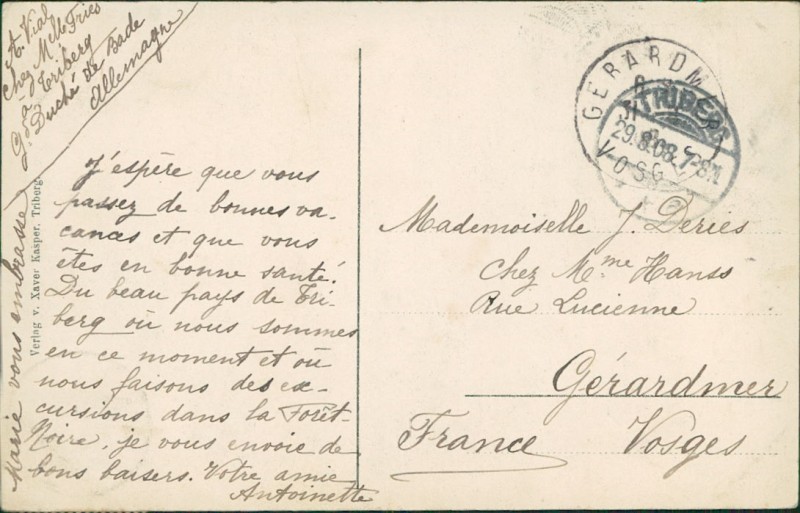 A. Vial
chez Mlle Fries
à Triberg
Gd Duché de Bade
Allemagne
J'espère que vous
passez de bonnes va-
cances et que vous
êtes en bonne santé.
Du beau pays de Tri-
berg où nous sommes
en ce moment et où
nous faisons des ex-
cursions dans la Forêt-
Noire, je vous envoie de
bons baisers. Votre amie
Antoinette
Marie vous embrasse
Verlag v. Xaver Kasper, Triberg.
GERARDM
TRIBERG
29.8.08.7-8N.
VOSG
Mademoiselle J. Deries
chez Mme Hanss
Rue Lucienne
Gérardmer
France Vosges